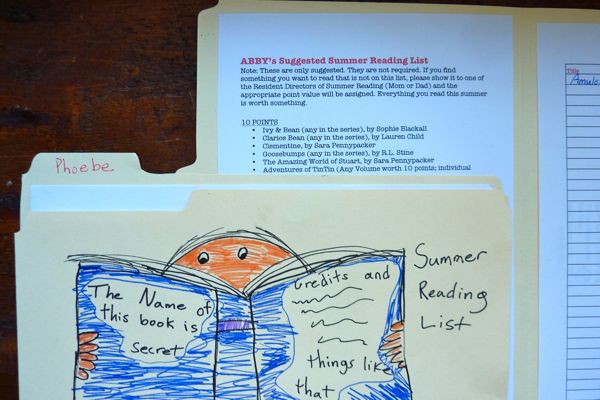 ABBY's Suggested Summer Reading List
Note: These are only suggested. They are not required. If you find
something you want to read that is not on this list, please show it to one
of the Resident Directors of Summer Reading (Mom or Dad) and the
appropriate point value will be assigned. Everything you read this summer
is worth something.
10 POINTS
• Ivy & Bean (any in the series), by Sophie Blackall
• Clarice Bean (any in the series), by Lauren Child
• Clementine, by Sara Pennypacker
• Goosebumps (any in the series), by R.L. Stine
• The Amazing World of Stuart, by Sara Pennypacker
• Adventures of TinTin (Any Volume worth 10 points; individual
Title
Amulet
Phoebe
The Name of
this book is
secret
Credits and
things like
that
Summer
Reading
List